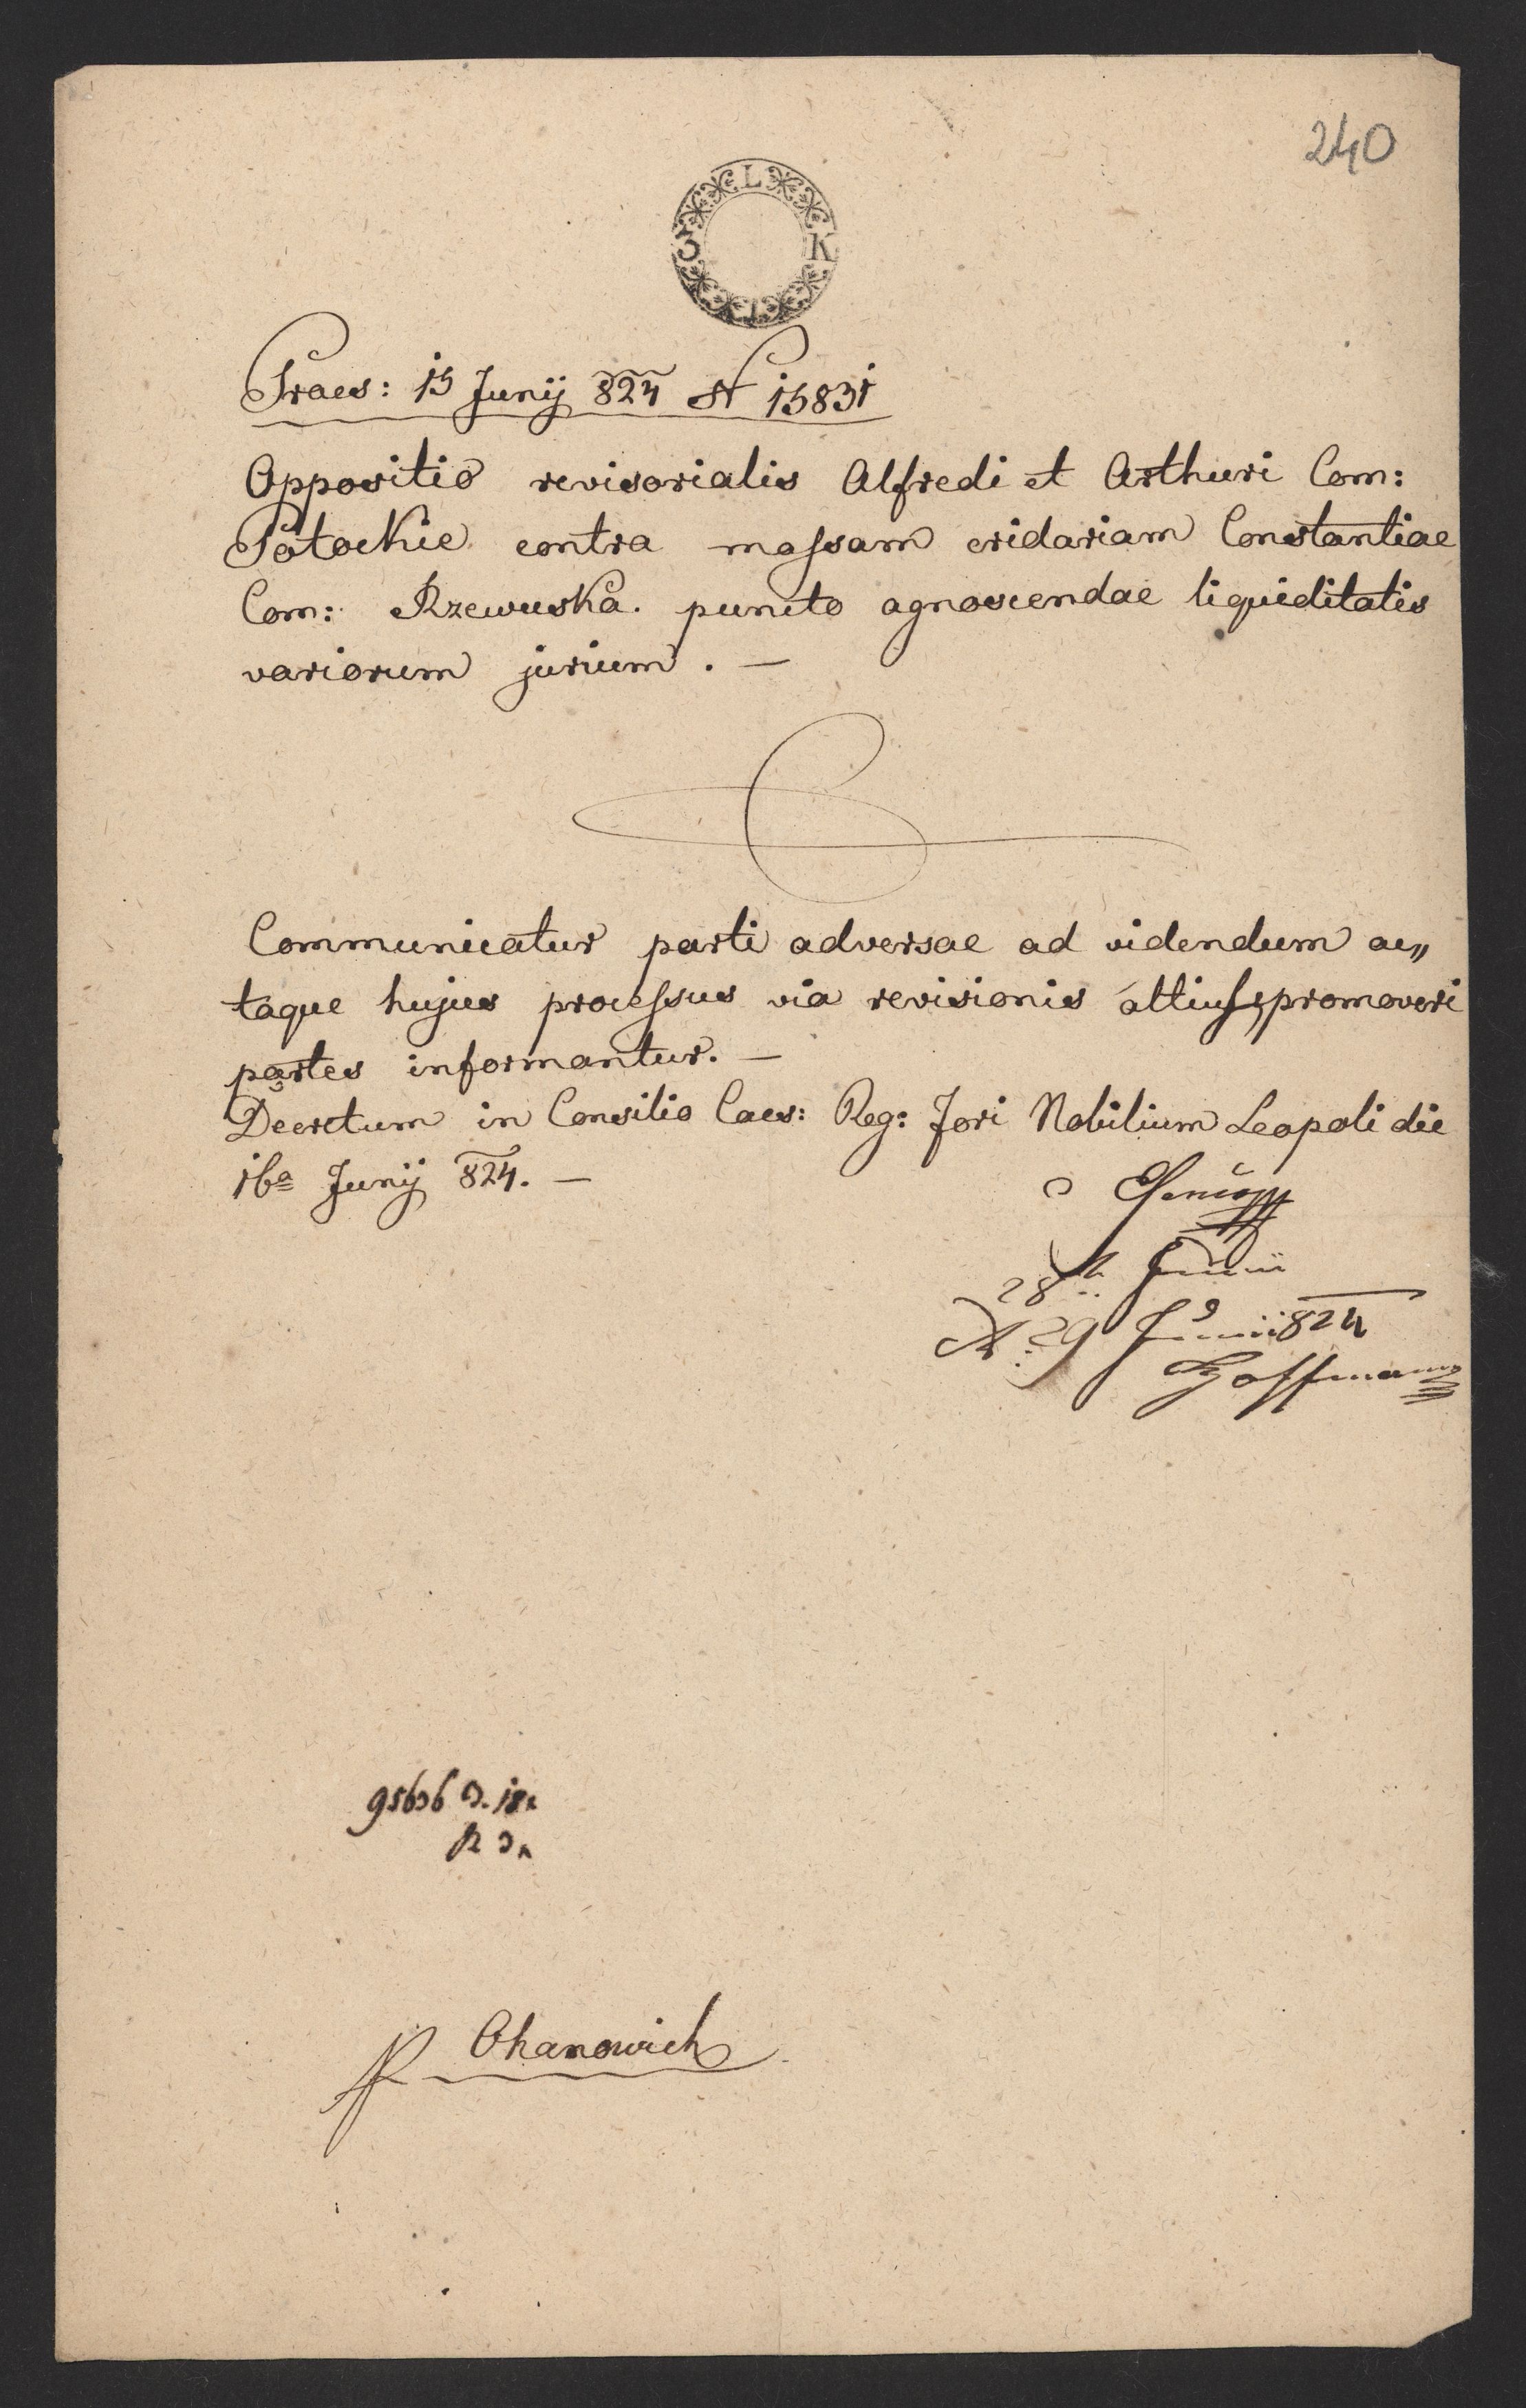 240
L
3 K
Praes: 15 Junÿ 824 N 15831
Oppositio revisorialis Alfredi et Arthuri Com:
Potockie contra massam cridariam Constantiae
Com: Rzewuska. puncto agnoscendae liquiditatis
variorum jurium. —
Communicatur parti adversae ad videndum ac„
taque hujus processus via revisionis altius promoveri
partes informantur. —
Decretum in Consilio Caes: Reg: Fori Nobilium Leopoli die
16a Junÿ 824. —
28 Junii
29 Junii 824
Hoffmann
Ohanowich